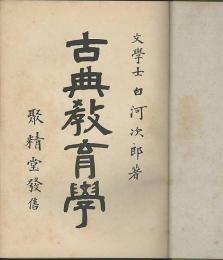 文學士 白河次郎著
古典教育學
聚精堂發售